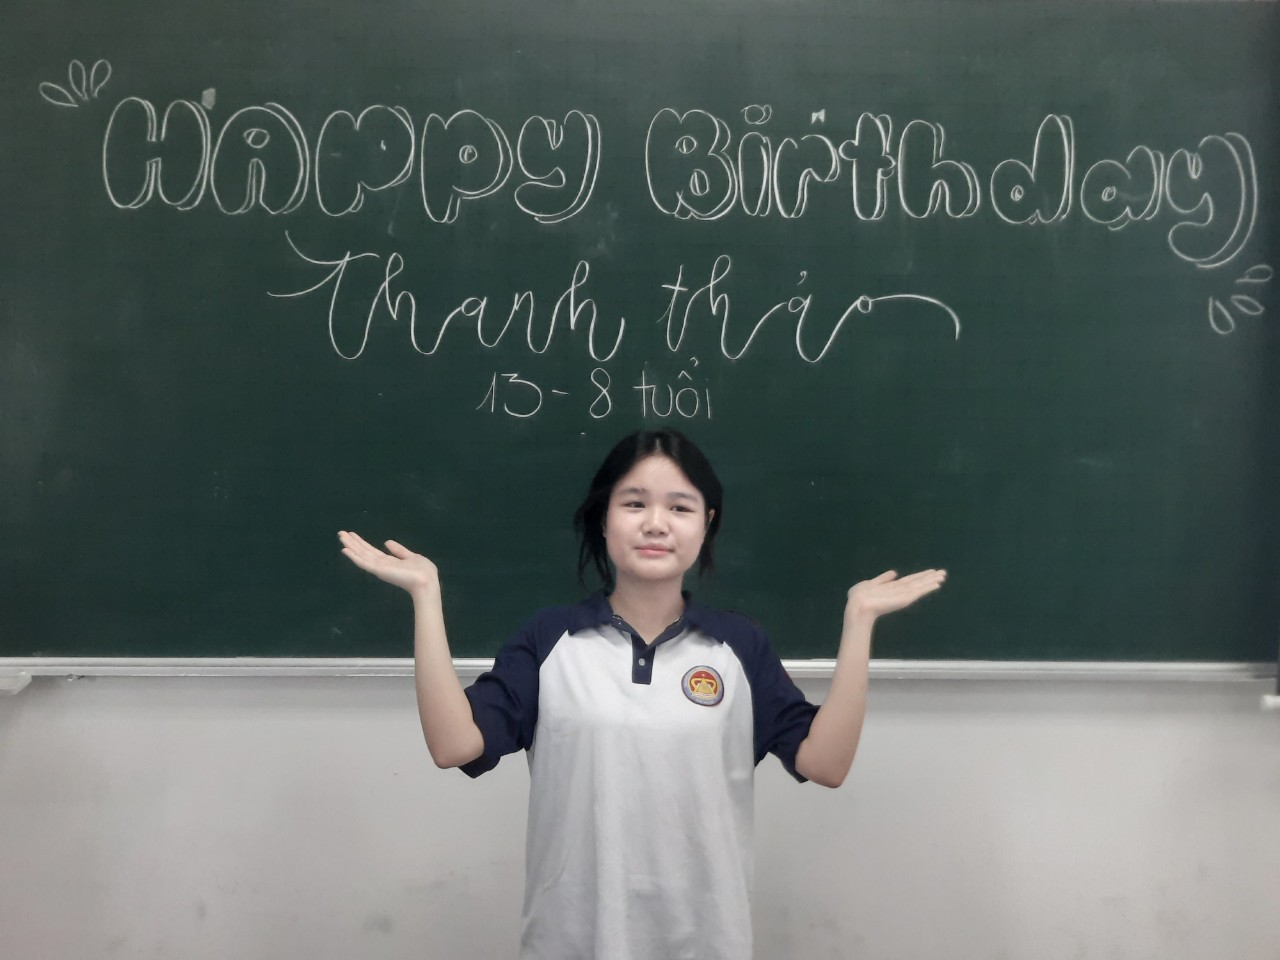 HAppy Birthday
Thanh thảo
13 - 8 tuổi